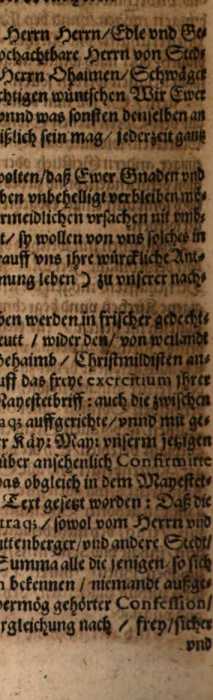 Herrn Herrn/Edle vnd Ge-
ochachtbare Herrn von Stedt
Herrn Ohaimen/Schwäger
chtigen wüntschen Wir Ewer
vnnd was sonsten denselben an
ißlich sein mag/jederzeit gantz
wolten/daß Ewer Gnaden vnd
ben vnbehelligt verbleiben mö-
rmeidlichen vrsachen nit vmb-
t/sy wollen von vns solches in
rauff vns ihre würckliche Ant-
nung leben) zu vnserer nach-
ben werden in frischer gedecht-
eutt / wider den/von weilandt
Behaimb / Christmildisten an-
uff das freye exercitium ihrer
Mayestetbriff: auch die zwischen
raqz auffgerichte/vnnd mit ge-
r Käy: May: vnserm jetzigen
über ansehenlich Confirmirte
was obgleich in dem Mayestet-
Text gesetzt worden: Daß die
traqz/sowol vom Herrn vnd
uttenberger/vnd andere Stedt/
Summa alle die jenigen/so sich
n bekennen/niemandt außge-
vermög gehörter Confession/
rgleichung nach / frey/sicher
vnd